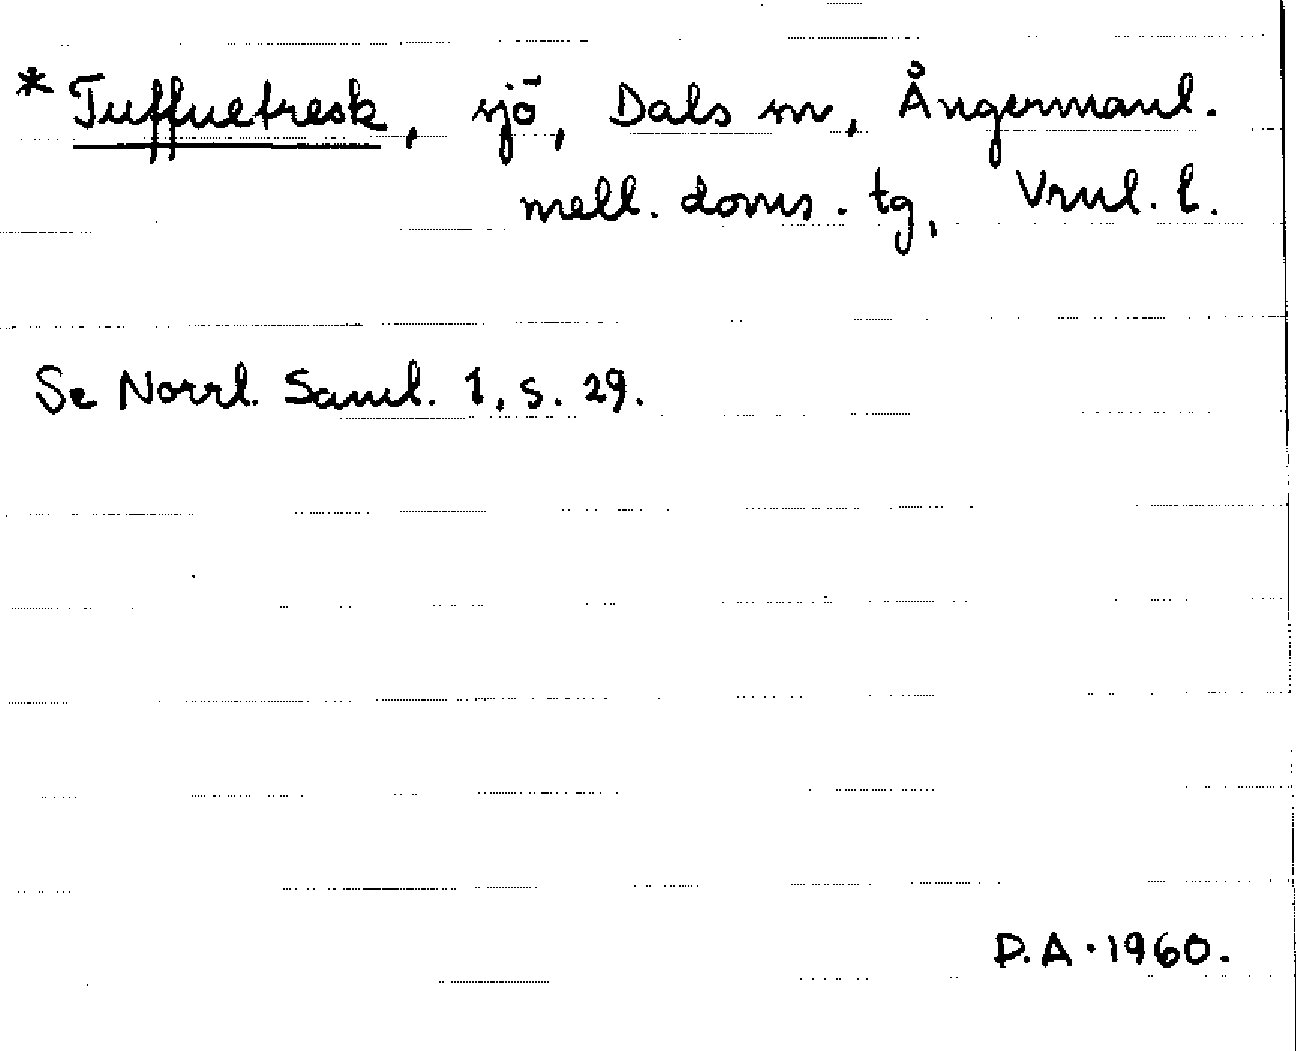 * Tuffuetresk, sjö, Dals sn, Ångermanl.
mell. doms. tg, Vrnl. l.
Se Norrl. Saml. 1, s. 29.
P.A. 1960.